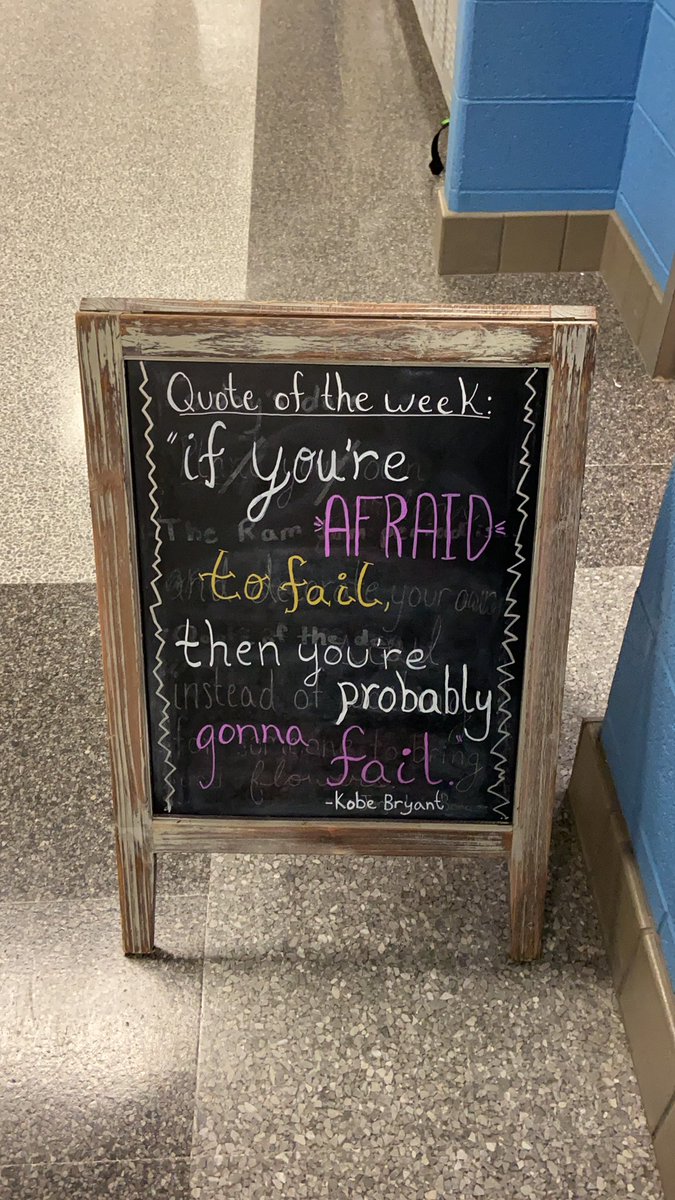 Quote of the week:
"if you're
AFRAID
to fail,
then you're
probably
gonna
fail."
-Kobe Bryant